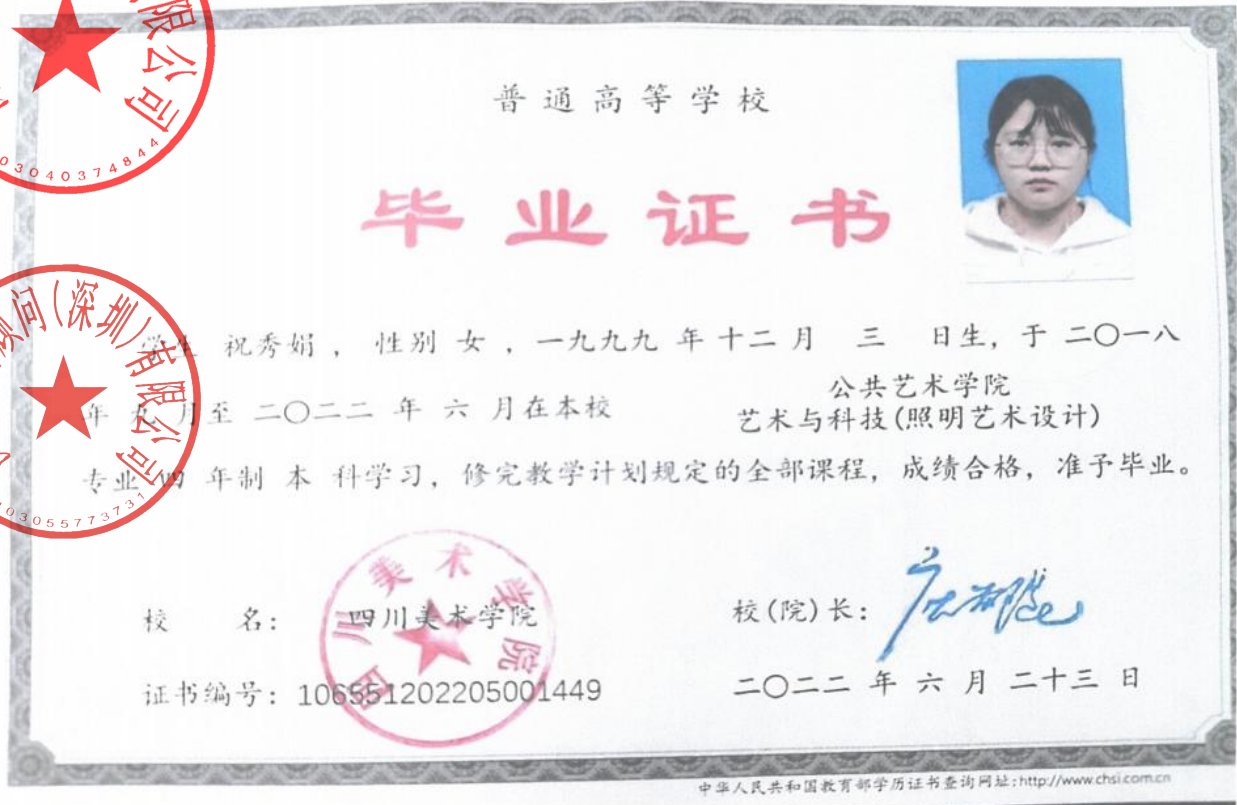 限公司
03040374844
普通高等学校
毕业证书
顾问(深圳)有限公司
03055773731
学生 祝秀娟 ， 性别 女 ，一九九九 年 十二 月 三 日生，于 二〇一八
年 九 月至 二〇二二 年 六 月在本校 公共艺术学院
艺术与科技(照明艺术设计)
专业 四 年制 本 科学习，修完教学计划规定的全部课程，成绩合格，准予毕业。
校 名： 四川美术学院
四川美术学院
校(院)长：
证书编号：106551202205001449
二〇二二 年 六 月 二十三 日
中华人民共和国教育部学历证书查询网址:http://www.chsi.com.cn